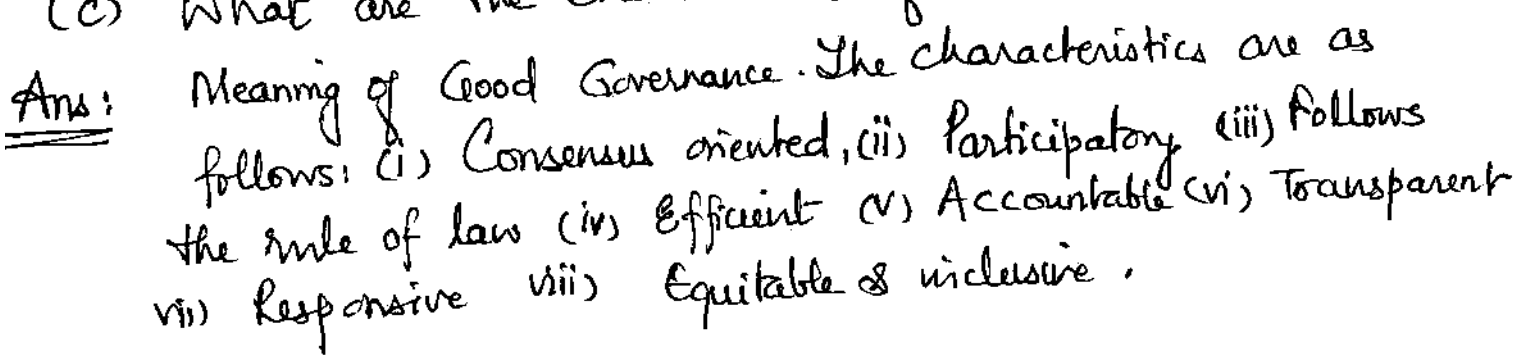 (c) What are the
Ans: Meaning of Good Governance. The characteristics are as
follows: (i) Consensus oriented, (ii) Participatory (iii) Follows
the rule of law (iv) Efficient (v) Accountable (vi) Transparent
vii) Responsive viii) Equitable & inclusive.